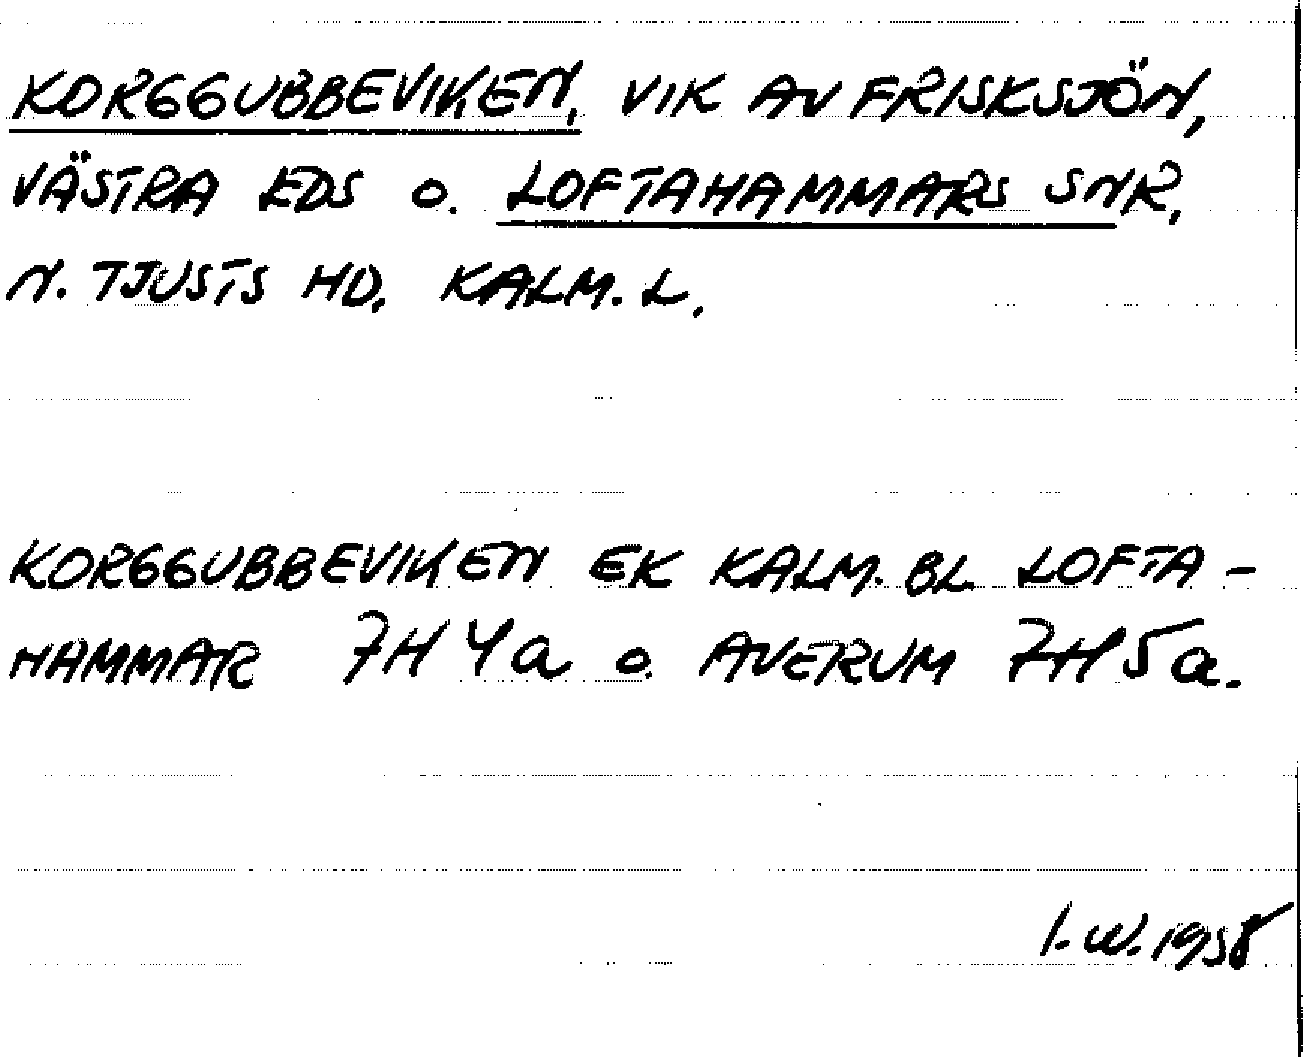 KORGGUBBEVIKEN, VIK AV FRISKSJÖN,
VÄSTRA EDS O. LOFTAHAMMARS SNR,
N. TJUSTS HD, KALM. L.
KORGGUBBEVIKEN EK KALM. BL LOFTA-
HAMMAR 7H 4a o. AVERUM 7H5a.
I.W. 1958